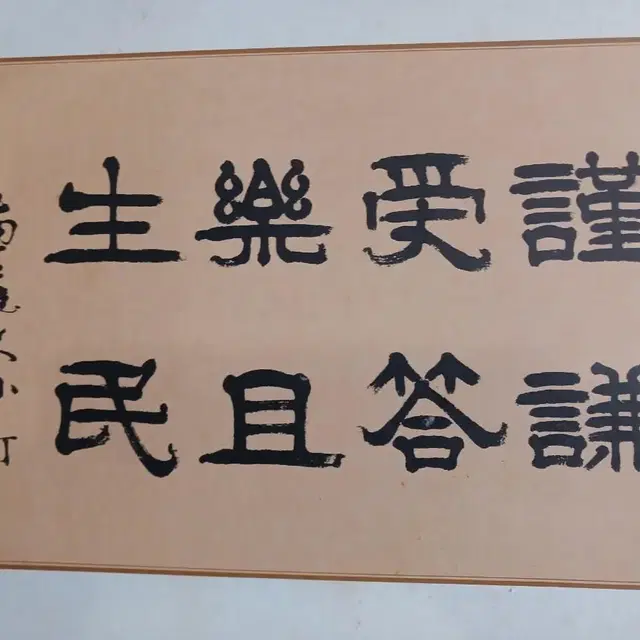 謹謙
受答
樂且
生民